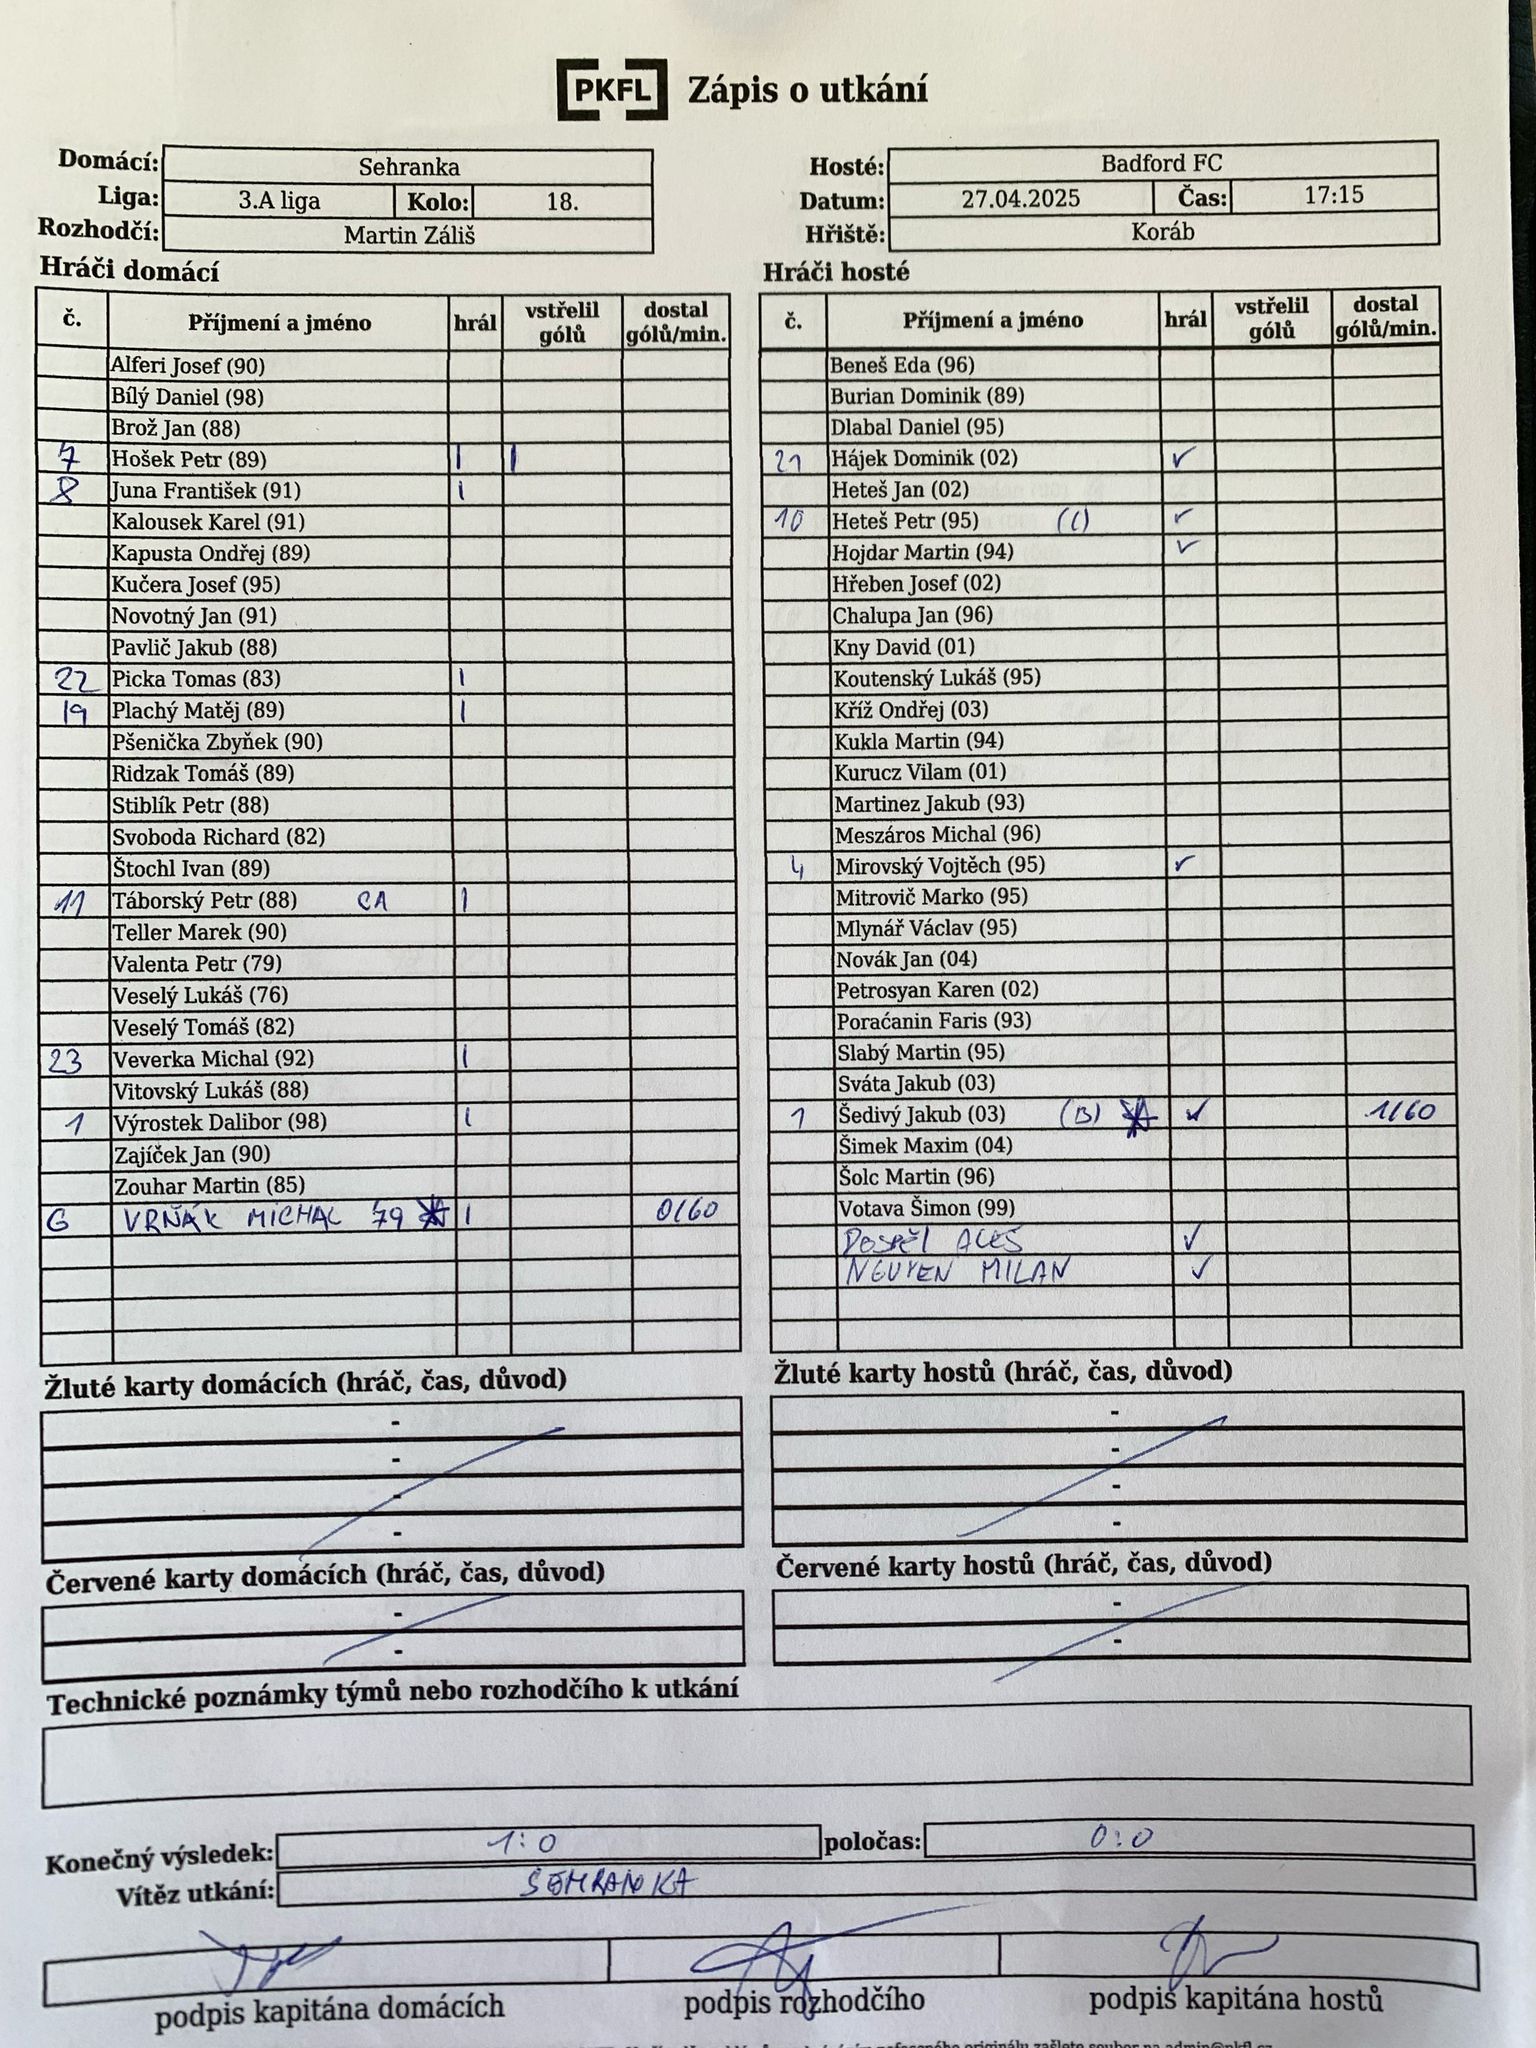 PKFL Zápis o utkání
Domácí: Sehranka
Liga: 3.A liga Kolo: 18.
Rozhodčí: Martin Záliš
Hosté: Badford FC
Datum: 27.04.2025 Čas: 17:15
Hřiště: Koráb
Hráči domácí
č. Příjmení a jméno hrál vstřelil gólů dostal gólů/min.
Alferi Josef (90)
Bílý Daniel (98)
Brož Jan (88)
7 Hošek Petr (89) I I
8 Juna František (91) I
Kalousek Karel (91)
Kapusta Ondřej (89)
Kučera Josef (95)
Novotný Jan (91)
Pavlič Jakub (88)
22 Picka Tomas (83) I
19 Plachý Matěj (89) I
Pšenička Zbyňek (90)
Ridzak Tomáš (89)
Stiblík Petr (88)
Svoboda Richard (82)
Štochl Ivan (89)
11 Táborský Petr (88) CA I
Teller Marek (90)
Valenta Petr (79)
Veselý Lukáš (76)
Veselý Tomáš (82)
23 Veverka Michal (92) I
Vitovský Lukáš (88)
1 Výrostek Dalibor (98) I
Zajíček Jan (90)
Zouhar Martin (85)
G VRŇÁK MICHAL 79 I 0/60
Hráči hosté
č. Příjmení a jméno hrál vstřelil gólů dostal gólů/min.
Beneš Eda (96)
Burian Dominik (89)
Dlabal Daniel (95)
21 Hájek Dominik (02) ✓
Heteš Jan (02)
10 Heteš Petr (95) (C) ✓
Hojdar Martin (94) ✓
Hřeben Josef (02)
Chalupa Jan (96)
Kny David (01)
Koutenský Lukáš (95)
Kříž Ondřej (03)
Kukla Martin (94)
Kurucz Vilam (01)
Martinez Jakub (93)
Meszáros Michal (96)
4 Mirovský Vojtěch (95) ✓
Mitrovič Marko (95)
Mlynář Václav (95)
Novák Jan (04)
Petrosyan Karen (02)
Poraćanin Faris (93)
Slabý Martin (95)
Sváta Jakub (03)
1 Šedivý Jakub (03) (B) ✓ 1/60
Šimek Maxim (04)
Šolc Martin (96)
Votava Šimon (99)
DOSPĚL ALEŠ ✓
NGUYEN MILAN ✓
Žluté karty domácích (hráč, čas, důvod)
-
-
-
-
Žluté karty hostů (hráč, čas, důvod)
-
-
-
-
Červené karty domácích (hráč, čas, důvod)
-
-
Červené karty hostů (hráč, čas, důvod)
-
-
Technické poznámky týmů nebo rozhodčího k utkání
Konečný výsledek: 1:0 poločas: 0:0
Vítěz utkání: SEHRANKA
podpis kapitána domácích podpis rozhodčího podpis kapitána hostů